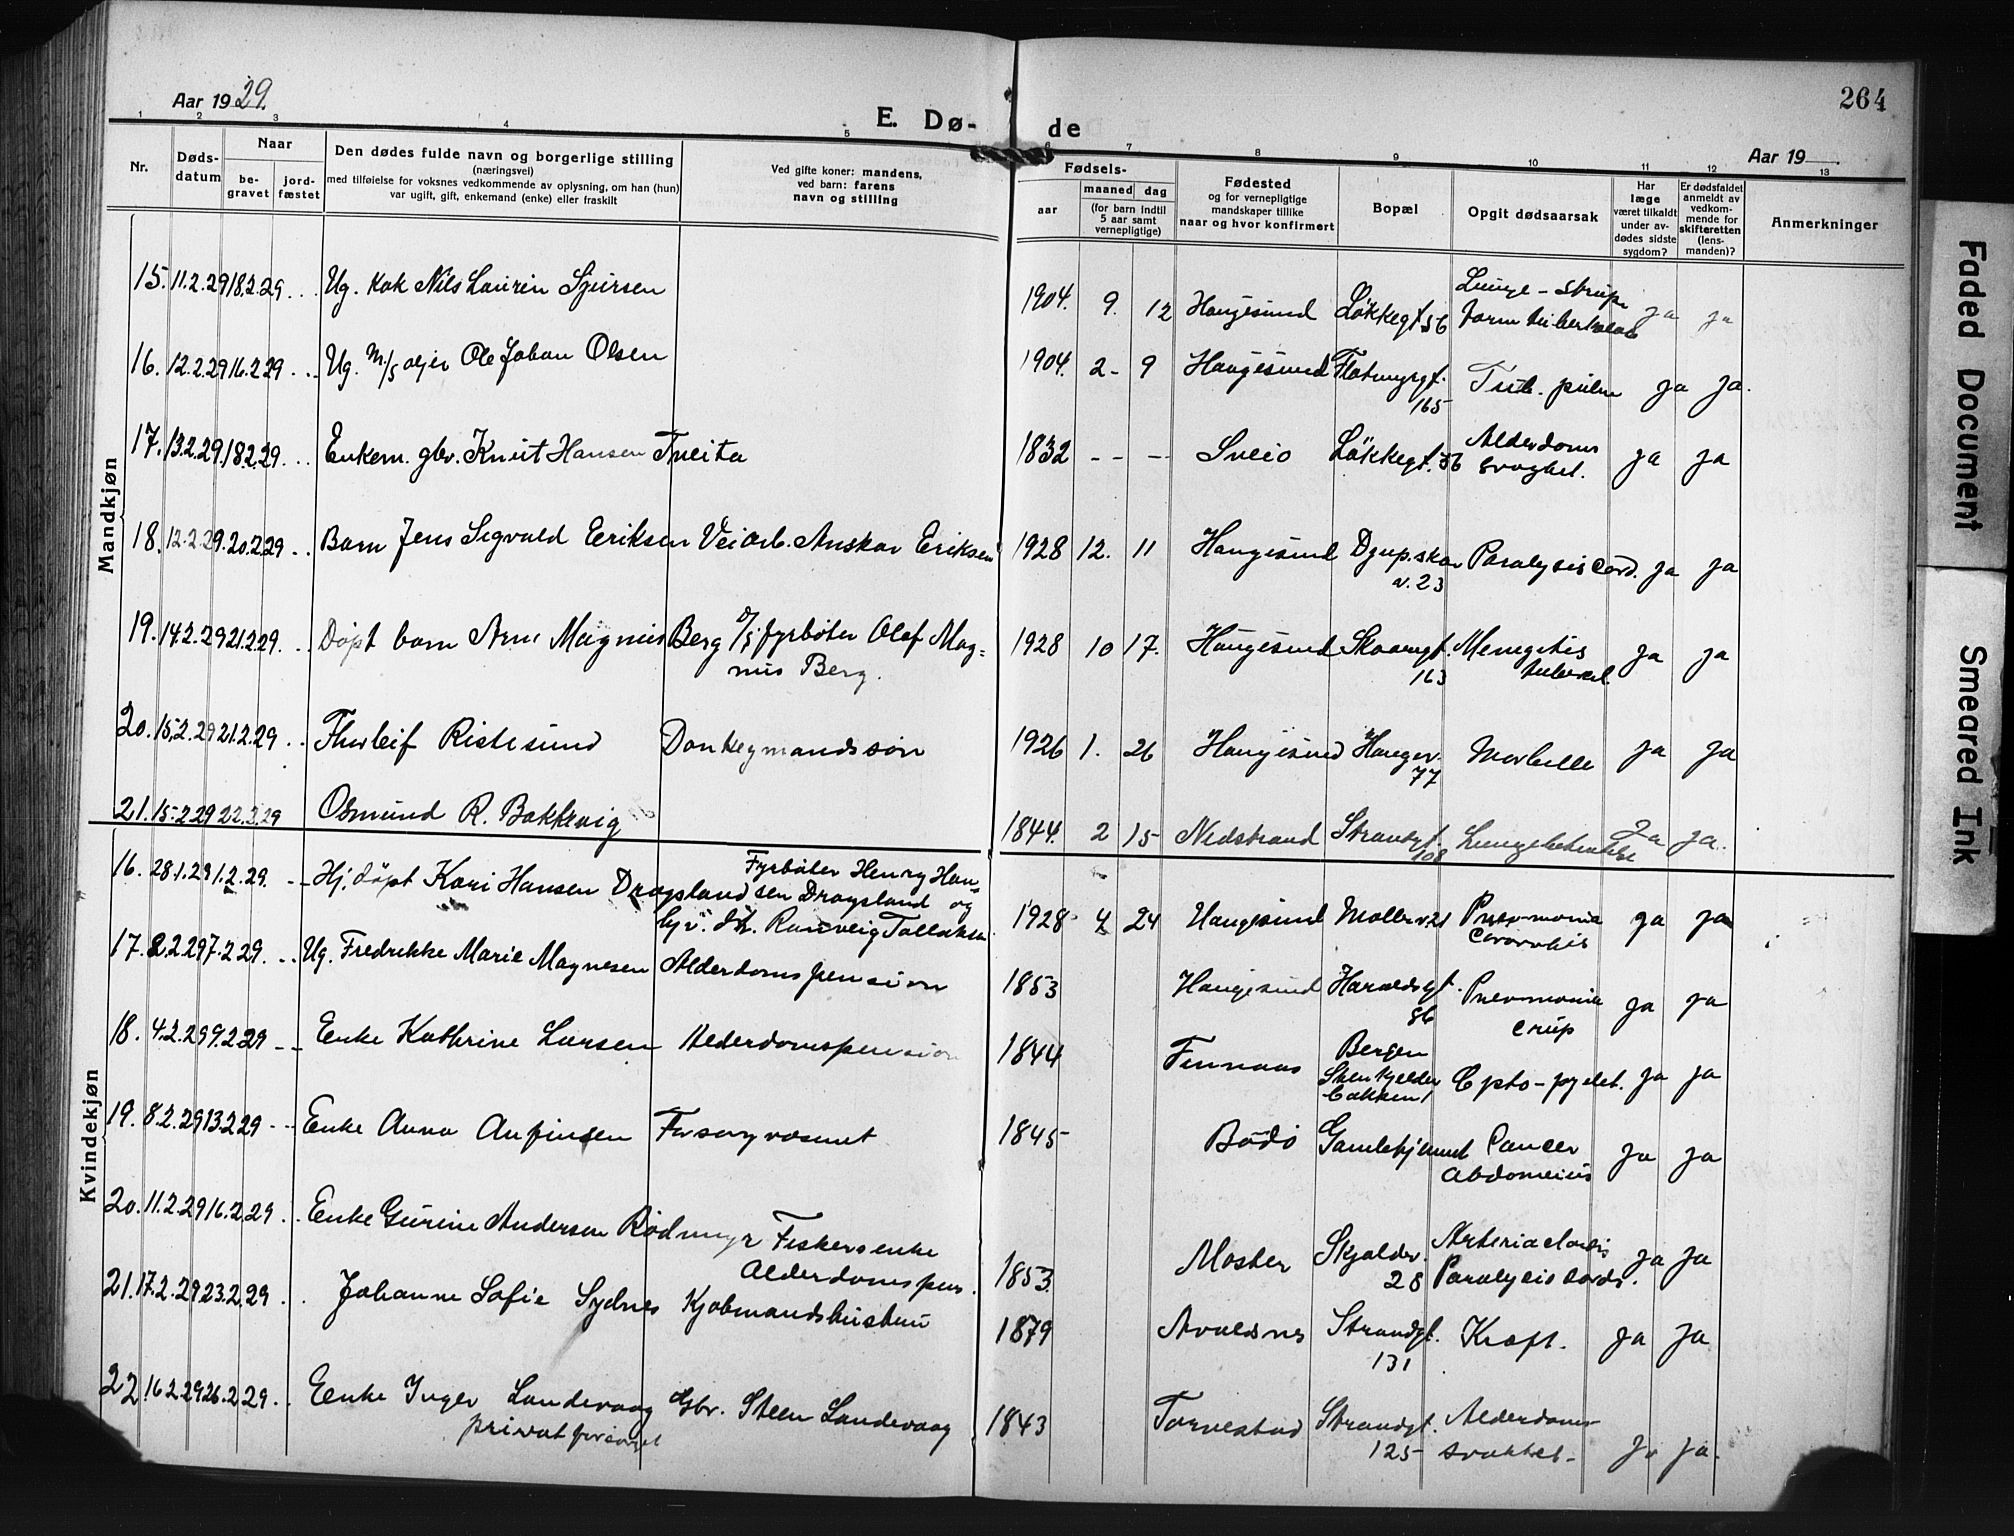 Aar 1929.
E. Dø-
de
264
Aar 19
1 2 3 4 5 6 7 8 9 10 11 12 13
Nr.
Døds-
datum
Naar
be-
gravet
jord-
fæstet
Den dødes fulde navn og borgerlige stilling
(næringsvei)
med tilføielse for voksnes vedkommende av oplysning, om han (hun)
var ugift, gift, enkemand (enke) eller fraskilt
Ved gifte koner: mandens,
ved barn: farens
navn og stilling
Fødsels-
aar
maaned dag
(for barn indtil
5 aar samt
vernepligtige)
Fødested
og for vernepligtige
mandskaper tillike
naar og hvor konfirmert
Bopæl
Opgit dødsaarsak
Har
læge
været tilkaldt
under av-
dødes sidste
sygdom?
Er dødsfaldet
anmeldt av
vedkom-
mende for
skifteretten
(lens-
manden)?
Anmerkninger
Mandkjøn
15. 11.2.29 18.2.29 Ug. kok Nils Laurin Sjursen
1904. 9. 12 Haugesund Løkkegt 56 Lunge - strupe
ja ja
16. 12.2.29 16.2.29 Ug. M/S oljer Ole Johan Olsen
1904. 2 - 9 Haugesund Flotmyrgt. 165 Tub. pulm ja ja.
17. 13.2.29 18.2.29 Enkem. gbr. Knut Hansen Tveita
1832 - - - - Sveio Løkkegt. 56 Alderdoms
svaghet. ja ja
18. 12.2.29 20.2.29 Barn Jens Sigvald Eriksen Veiarb. Anskar Eriksen
1928 12. 11 Haugesund Djup.skar
v. 23 Paralysis cord. ja ja
19. 14.2.29 21.2.29 Døpt barn Arne Magnus Berg D/S fyrbøter Olaf Mag=
nus Berg.
1928 10 17. Haugesund Skaaregt.
163 Menegitis
tubercul. ja ja
20. 15.2.29 21.2.29 Thorleif Ristesund Donkeymandssøn
1926 1. 26 Haugesund Haugev.
77 Morbille ja ja
21. 15.2.29 22.2.29 Osmund R. Bakkevig
1844. 2 15 Nedstrand Strandgt.
108 Ja ja.
Kvindekjøn
16. 28.1.29 1.2.29. Hj. døpt Kari Hansen Dragsland Fyrbøter Henry Han=
sen Dragsland og
Ranveig Tollaksen
1928 4 24 Haugesund Møllerv. 21 Pnevmonia
ja ja
17. 2.2.29 7.2.29. Ug. Fredrikke Marie Magnesen Alderdomspension
1853 Haugesund Haraldsgt.
86 Pnevmonia
crup ja ja
18. 4.2.29 9.2.29 Enke Kathrine Larsen Alderdomspension
1844 Finnaas Bergen
Stenkjelder
bakken 1 Cysto-pyelit. ja ja
19. 8.2.29 13.2.29 Enke Anna Anfinsen Forsorgvæsenet
1845 Bodø Gamlehjemmet Cancer
abdominis ja ja
20. 11.2.29 16.2.29 Enke Gurine Andersen Rødmyr Fiskersenke
Alderdomspen.
1853. Moster Skjolder.
28 Paralysis cordis. ja ja
21. 17.2.29 23.2.29 Johanne Sofie Sydnes Kjøbmandshustru
1879 Avaldsnes Strandgt.
131 Kræft. ja ja
22 16.2.29 26.2.29 Enke Inger Landevaag Gbr. Steen Landevaag
privat forsørget
1843 Torvestad Strandgt.
125 Alderdoms
svakhet. ja ja.
Faded Document
Smeared Ink